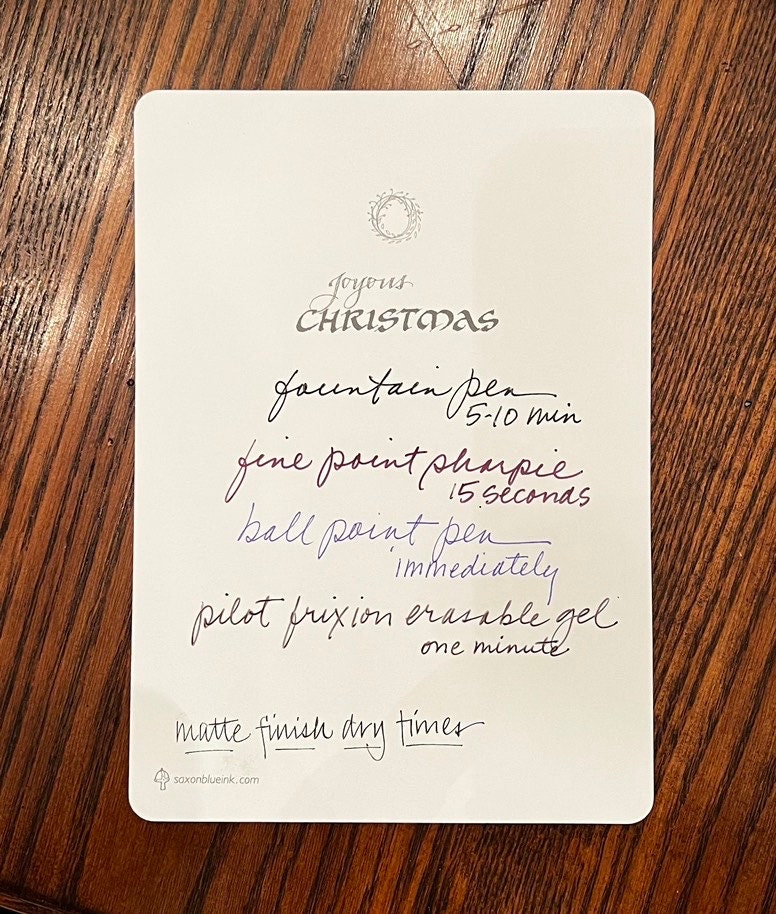 Joyous
CHRISTMAS
fountain pen
5-10 min
fine point sharpie
15 seconds
ball point pen
immediately
pilot frixion erasable gel
one minute
matte finish dry times
saxonblueink.com